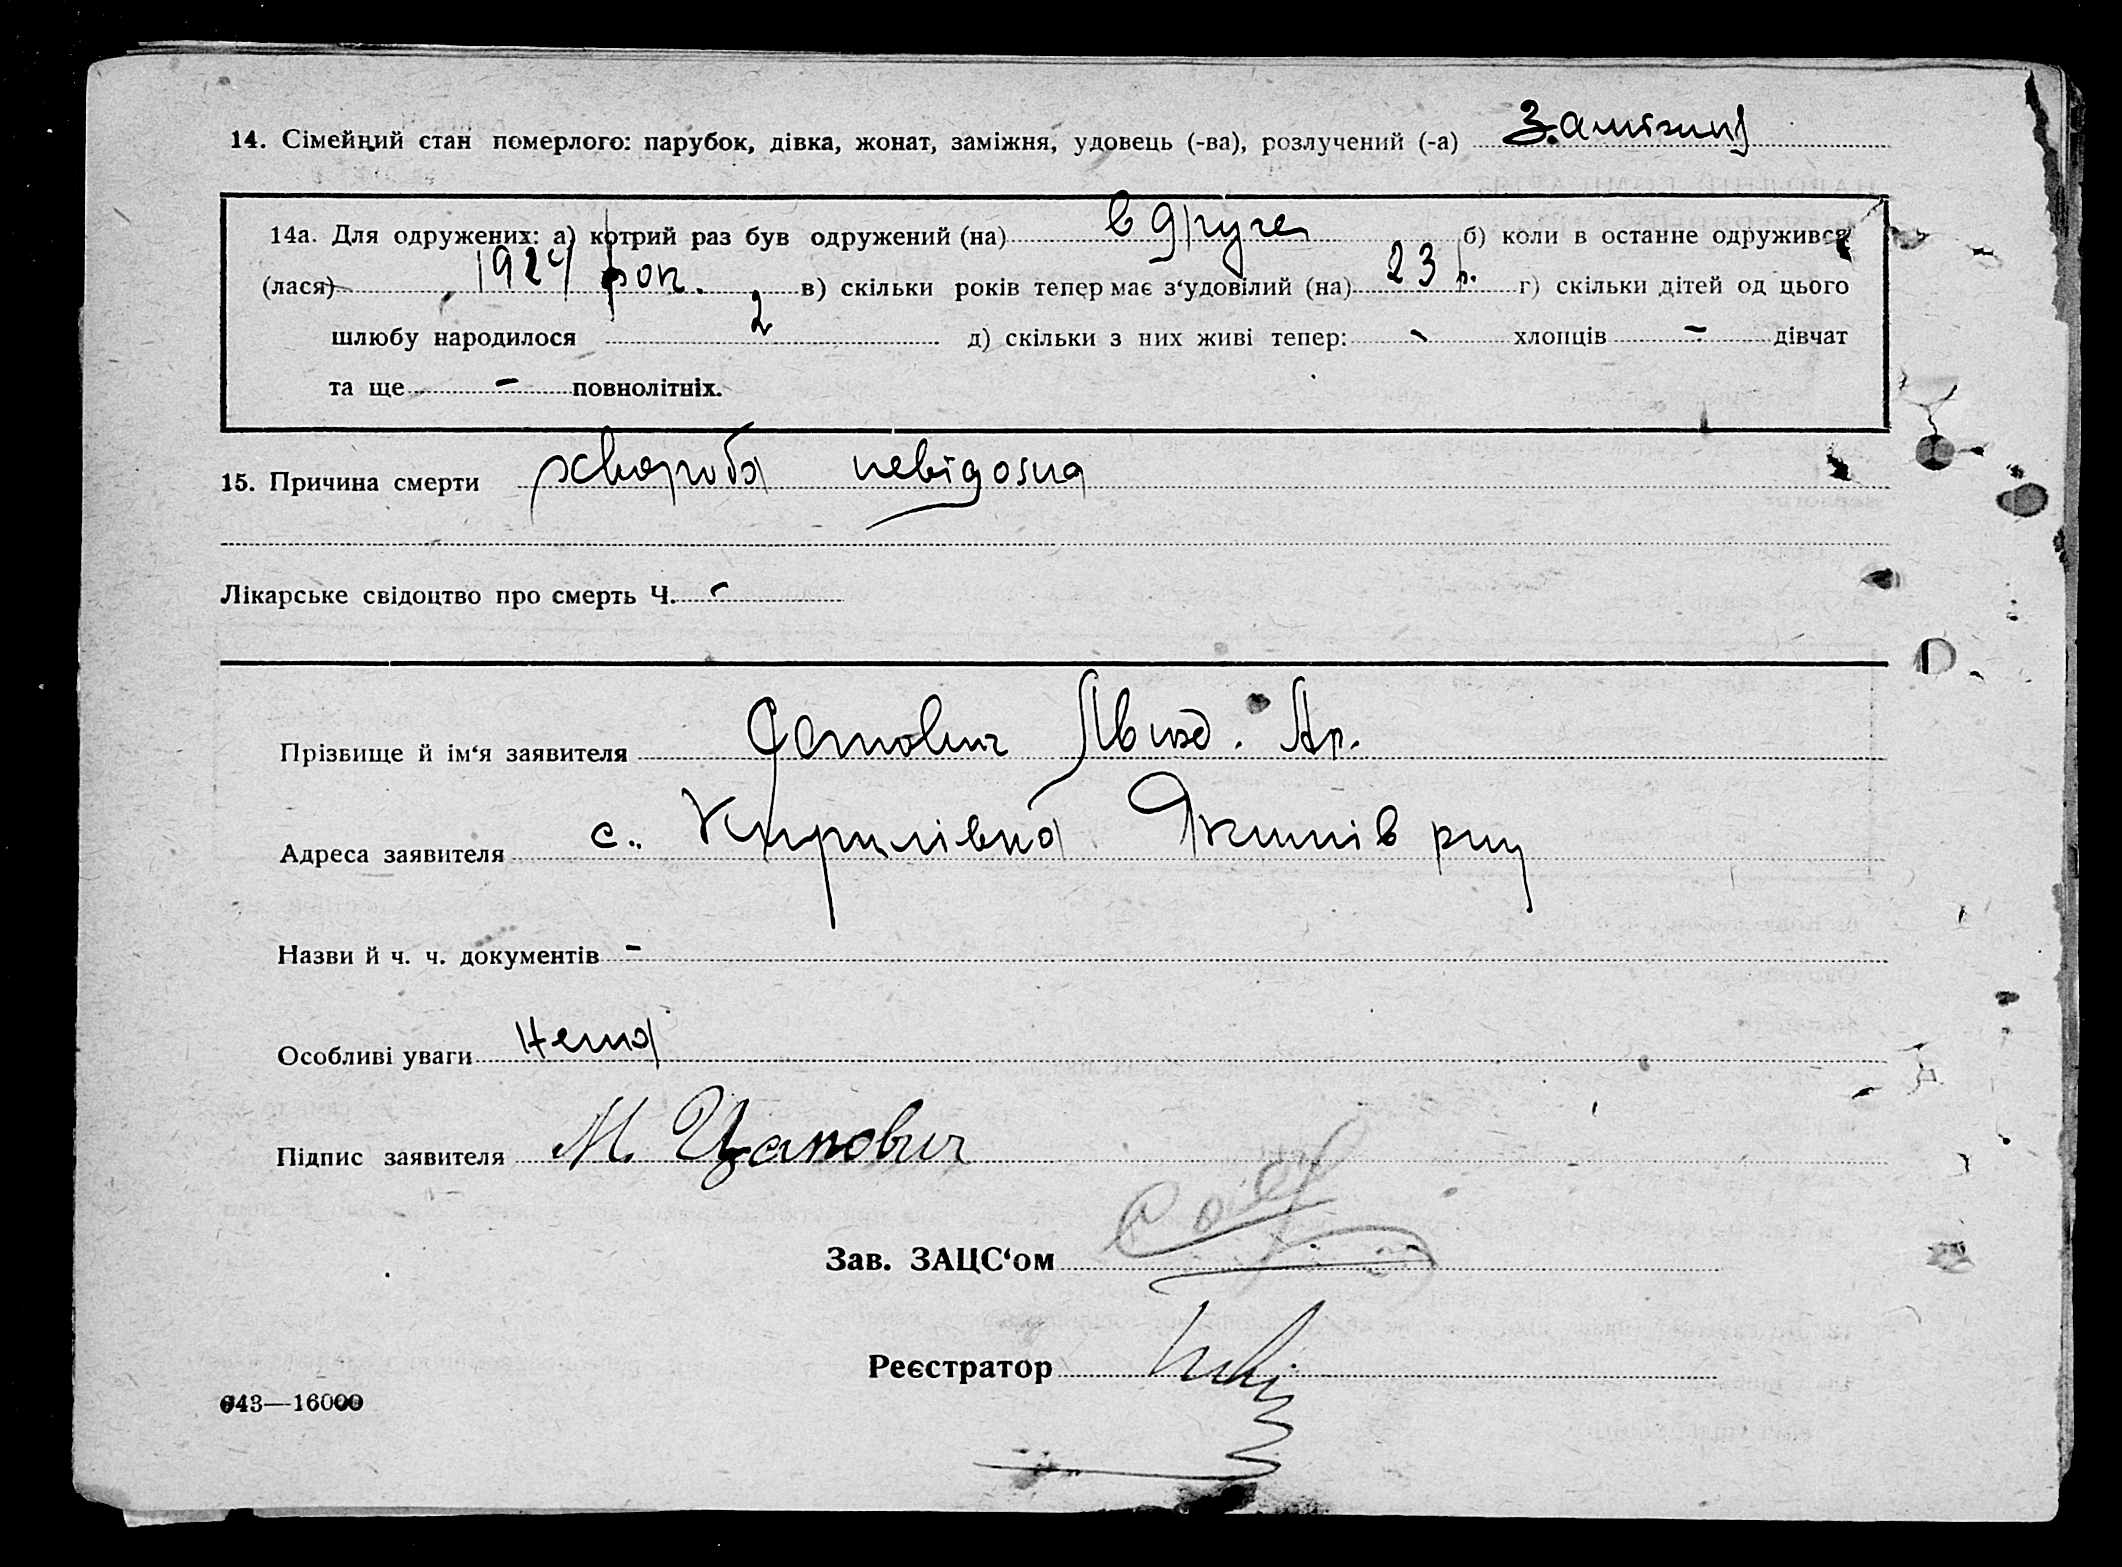 14. Сімейний стан померлого: парубок, дівка, жонат, заміжня, удовець (-ва), розлучений (-а) Заміжня
14а. Для одружених: а) котрий раз був одружений (на) в друге б) коли в останнє одружився
(лася) 1924 рок. в) скільки років тепер має з‘удовілий (на) 23 р. г) скільки дітей од цього
шлюбу народилося 2 д) скільки з них живі тепер: - хлопців - дівчат
та ще - повнолітніх.
15. Причина смерти хвороба невідома
Лікарське свідоцтво про смерть Ч. -
Прізвище й ім‘я заявителя Ар.
Адреса заявителя с. Кирилівка
Назви й ч. ч. документів -
Особливі уваги Нема
Підпис заявителя М. Цапович
Зав. ЗАЦС‘ом
Реєстратор
643—16000